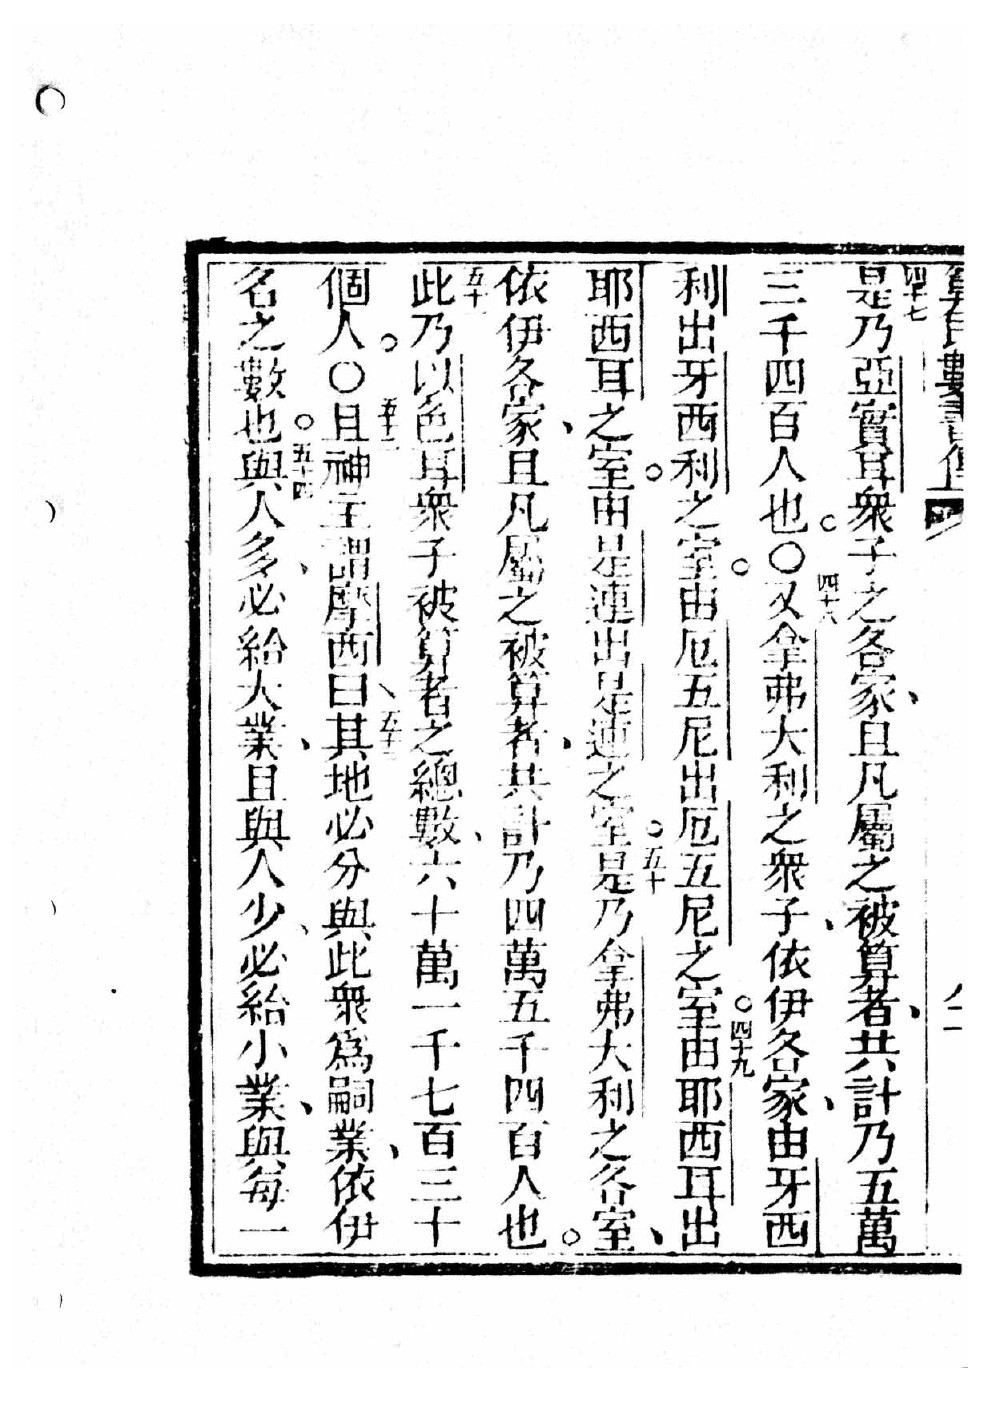 算民數書傳
四十七是乃亞實耳衆子之各家、且凡屬之被算者、共計乃五萬
三千四百人也。○四十八又拿弗大利之衆子、依伊各家、由牙西
利出牙西利之室。由厄五尼出厄五尼之室。四十九由耶西耳出
耶西耳之室。由是連出是連之室。五十是乃拿弗大利之各室、
依伊各家、且凡屬之被算者、共計乃四萬五千四百人也。
五十一此乃以色耳衆子被算者之總數、六十萬一千七百三十
個人。○五十二且神主謂摩西曰、五十三其地必分與此衆爲嗣業、依伊
名之數也。五十四與人多、必給大業、且與人少、必給小業、與每一